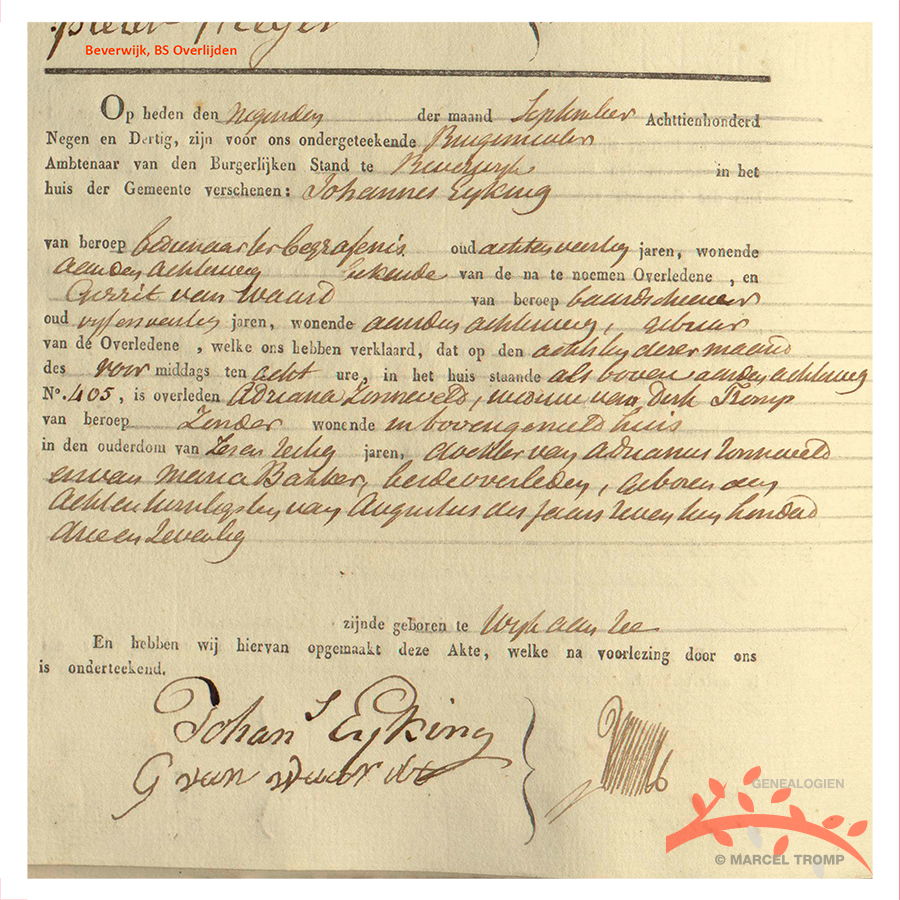 Pieter Meijer
Beverwijk, BS Overlijden
Op heden den negenden der maand September Achttienhonderd
Negen en Dertig, zijn voor ons ondergeteekende Burgemeester
Ambtenaar van den Burgerlijken Stand te Beverwijk in het
huis der Gemeente verschenen: Johannes Eyking
van beroep bedienaar ter begrafenis oud achtenveertig jaren, wonende
aan den achterweg bekende van de na te noemen Overledene, en
Gerrit van Waard van beroep baardscheerer
oud vyfenveertig jaren, wonende aan den achterweg, gebuur
van de Overledene, welke ons hebben verklaard, dat op den achtsten dezer maand
des voor middags ten acht ure, in het huis staande als boven aan den achterweg
No. 405, is overleden Adriana Zonneveld, weduwe van Dirk Tromp
van beroep Zonder wonende in bovengemeld huis
in den ouderdom van Zes en zestig jaren, dochter van Adrianus Zonneveld
en van Maria Bakker, beide overleden, geboren den
achtentwintigsten van Augustus des jaars zeventien honderd
drie en zeventig
zijnde geboren te Wyk aan Zee
En hebben wij hiervan opgemaakt deze Akte, welke na voorlezing door ons
is onderteekend.
Johans Eyking
G van Waard
GENEALOGIEN
© MARCEL TROMP